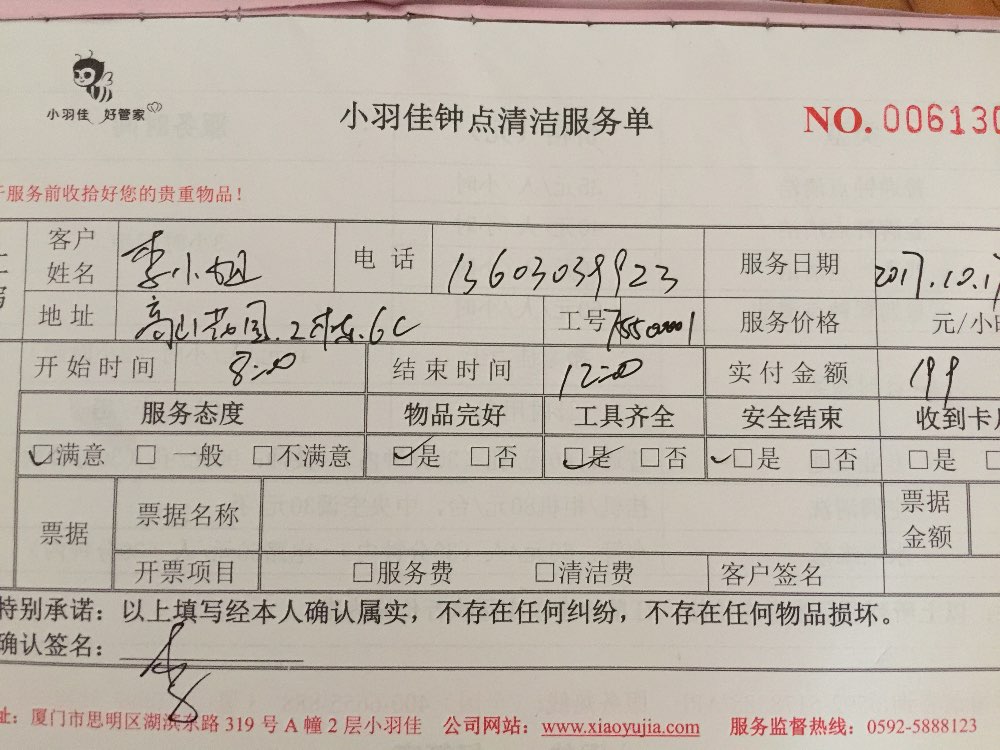 小羽佳 好管家
小羽佳钟点清洁服务单
NO. 006130
服务前收拾好您的贵重物品！
客户姓名 李小姐 电话 13603039923 服务日期 2017.10.17
地址 高山花园.2栋.6C 工号 75500001 服务价格 元/小时
开始时间 8:00 结束时间 12:00 实付金额 199
服务态度 物品完好 工具齐全 安全结束 收到卡
☑满意 □一般 □不满意 ☑是 □否 ☑是 □否 ☑是 □否 □是 □
票据 票据名称 票据金额
开票项目 □服务费 □清洁费 客户签名
特别承诺：以上填写经本人确认属实，不存在任何纠纷，不存在任何物品损坏。
确认签名：
址：厦门市思明区湖滨东路 319 号 A 幢 2 层小羽佳 公司网站：www.xiaoyujia.com 服务监督热线：0592-5888123